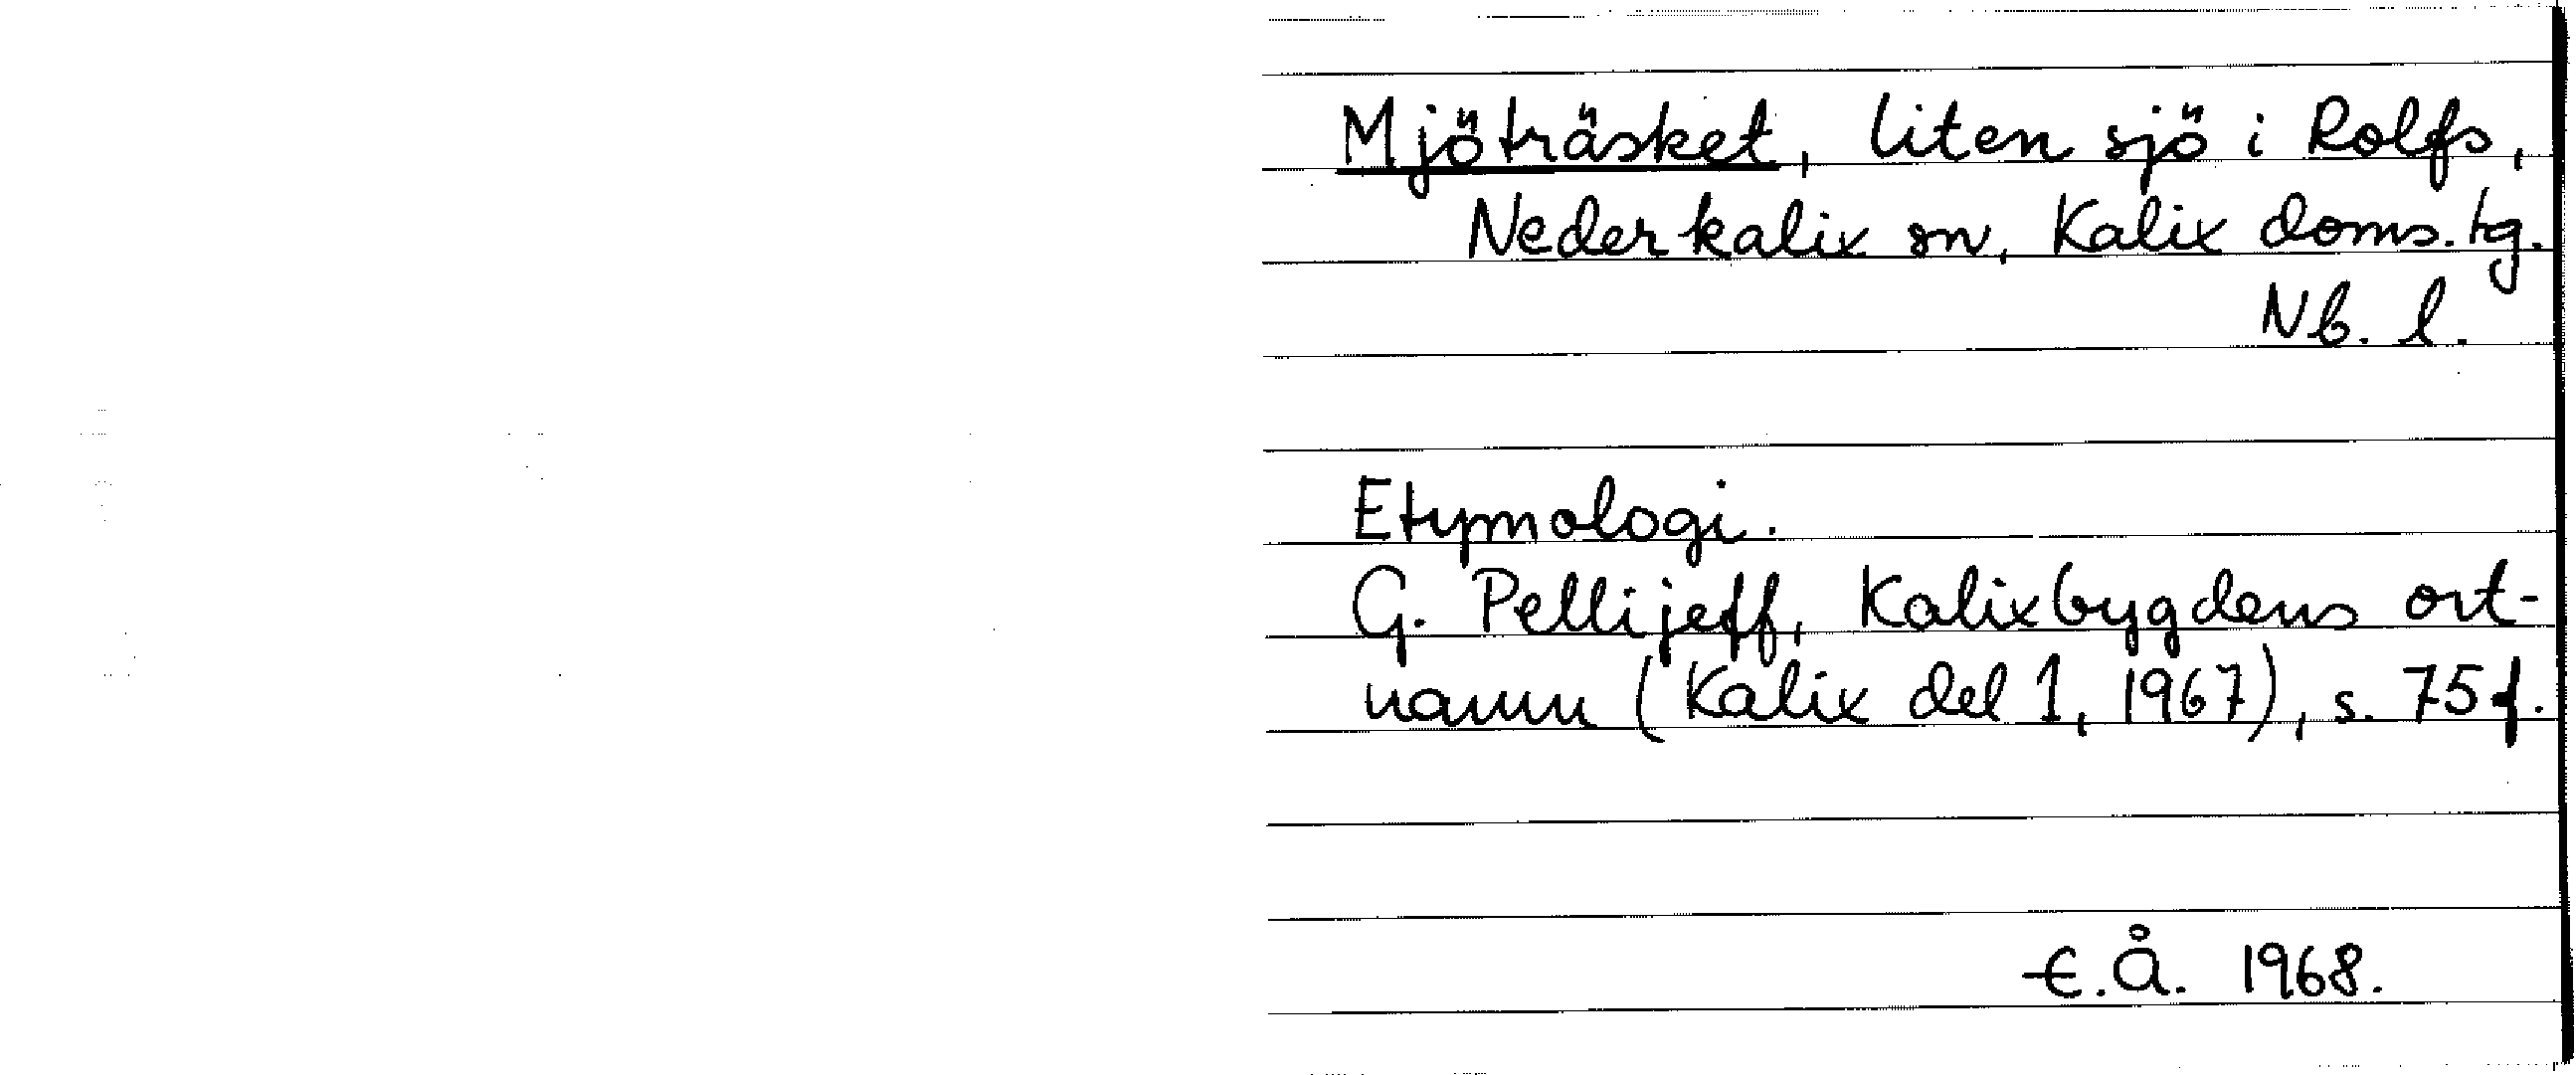 Mjöträsket, liten sjö i Rolfs,
Nederkalix sn, Kalix doms. tg.
Nb. l.
Etymologi.
G. Pellijeff, Kalixbygdens ort-
namn (Kalix del 1, 1967), s. 75 f.
E.Å. 1968.